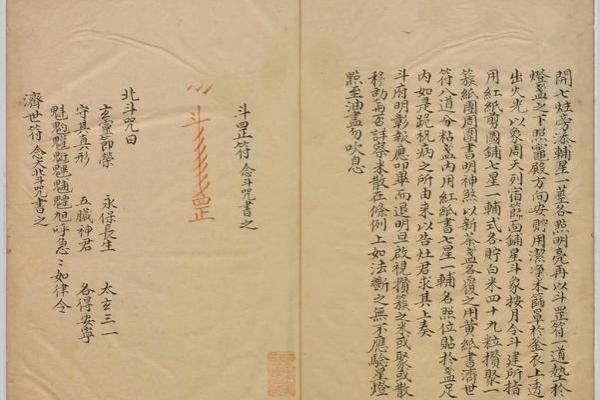 開七炷旁添輔星一盞各照明亮再以斗罡符一道熱於
燈盞之下照竈殿方向安貯用潔淨木篩罩於釜衣上透
出火光以象周天列宿篩面鋪星斗象按月令斗建所指
用紅紙剪圖鋪七星一輔式各貯白米四十九粒攢聚一
簇紙團周圍書明神煞以新茶盞各覆之用黃紙書濟世
符八道分粘盞內用紅紙書七星一輔名照位貼於盞足
內如是跪祝病之所由來以告灶君求其上奏
斗府明彰報應叩畢而退明旦啟視攢簇之米或聚或散
移動與否詳察米散在條例上如法斷之無不應驗星燈
照至油盡勿吹息
斗罡符 念斗咒書之
斗 罡
北斗咒曰
玄靈節榮 永保長生 太玄三一
守其真形 五臟神君 各得安寧
魁䰢䰣魓魒魖旭呼急急如律令
濟世符 念天北斗咒書之